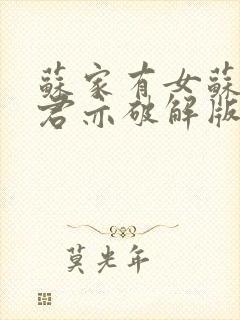 蘇家有女蘇
君亦破解版
莫光年